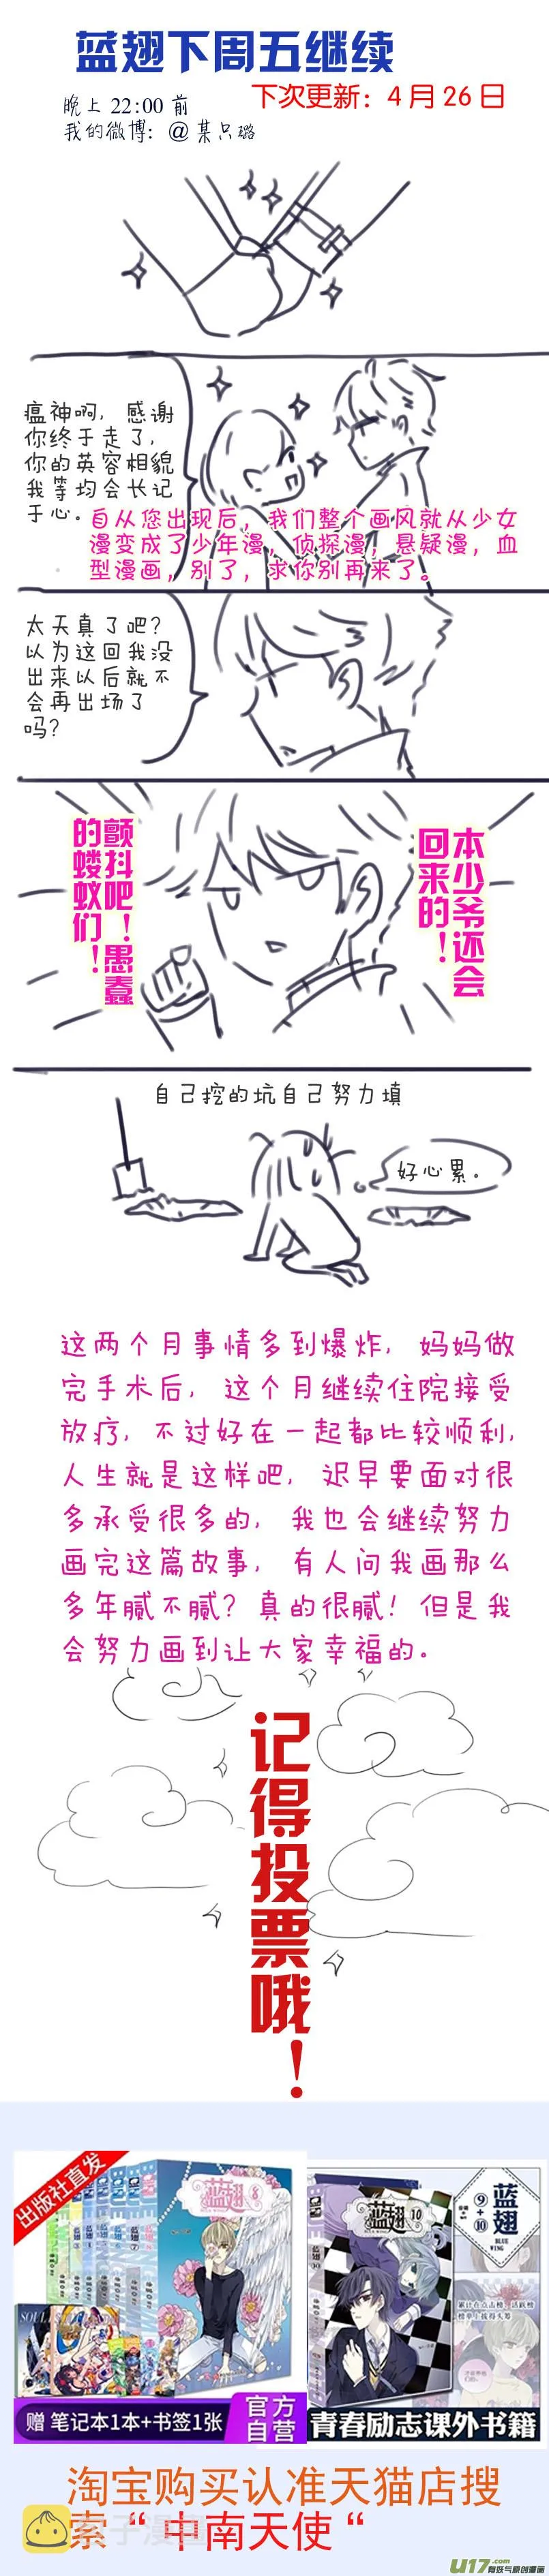 蓝翅下周五继续
下次更新：4月26日
晚上 22:00 前
我的微博：@某只璐
瘟神啊，感谢
你终于走了，
你的英容相貌
我等均会长记
于心。
自从您出现后，我们整个画风就从少女
漫变成了少年漫，侦探漫，悬疑漫，血
型漫画，别了，求你别再来了。
太天真了吧？
以为这回我没
出来以后就不
会再出场了
吗？
本少爷还会
回来的！
颤抖吧！愚蠢
的蝼蚁们！
自己挖的坑自己努力填
好心累。
这两个月事情多到爆炸，妈妈做
完手术后，这个月继续住院接受
放疗，不过好在一起都比较顺利，
人生就是这样吧，迟早要面对很
多承受很多的，我也会继续努力
画完这篇故事，有人问我画那么
多年腻不腻？真的很腻！但是我
会努力画到让大家幸福的。
记得投票哦！
出版社直发
蓝翅 8
赠 笔记本1本+书签1张
官方
自营
蓝翅 10
蓝翅
⑨+⑩
BLUE
WING
青春励志课外书籍
淘宝购买认准天猫店搜
索“中南天使“
U17.com
有妖气原创漫画